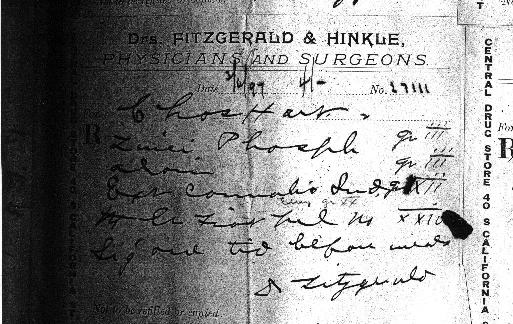 Drs. FITZGERALD & HINKLE,
PHYSICIANS AND SURGEONS.
Date No. 27111
For Chas Hart
R Zinci Phosph gr iii
Aloin gr iii
Ext Cannabis Ind gr xii
M ft pil No xxiv
Sig one tid before meals
Fitzgerald
Not to be refilled or copied.
CENTRAL DRUG STORE 40 S CALIFORNIA
For
R